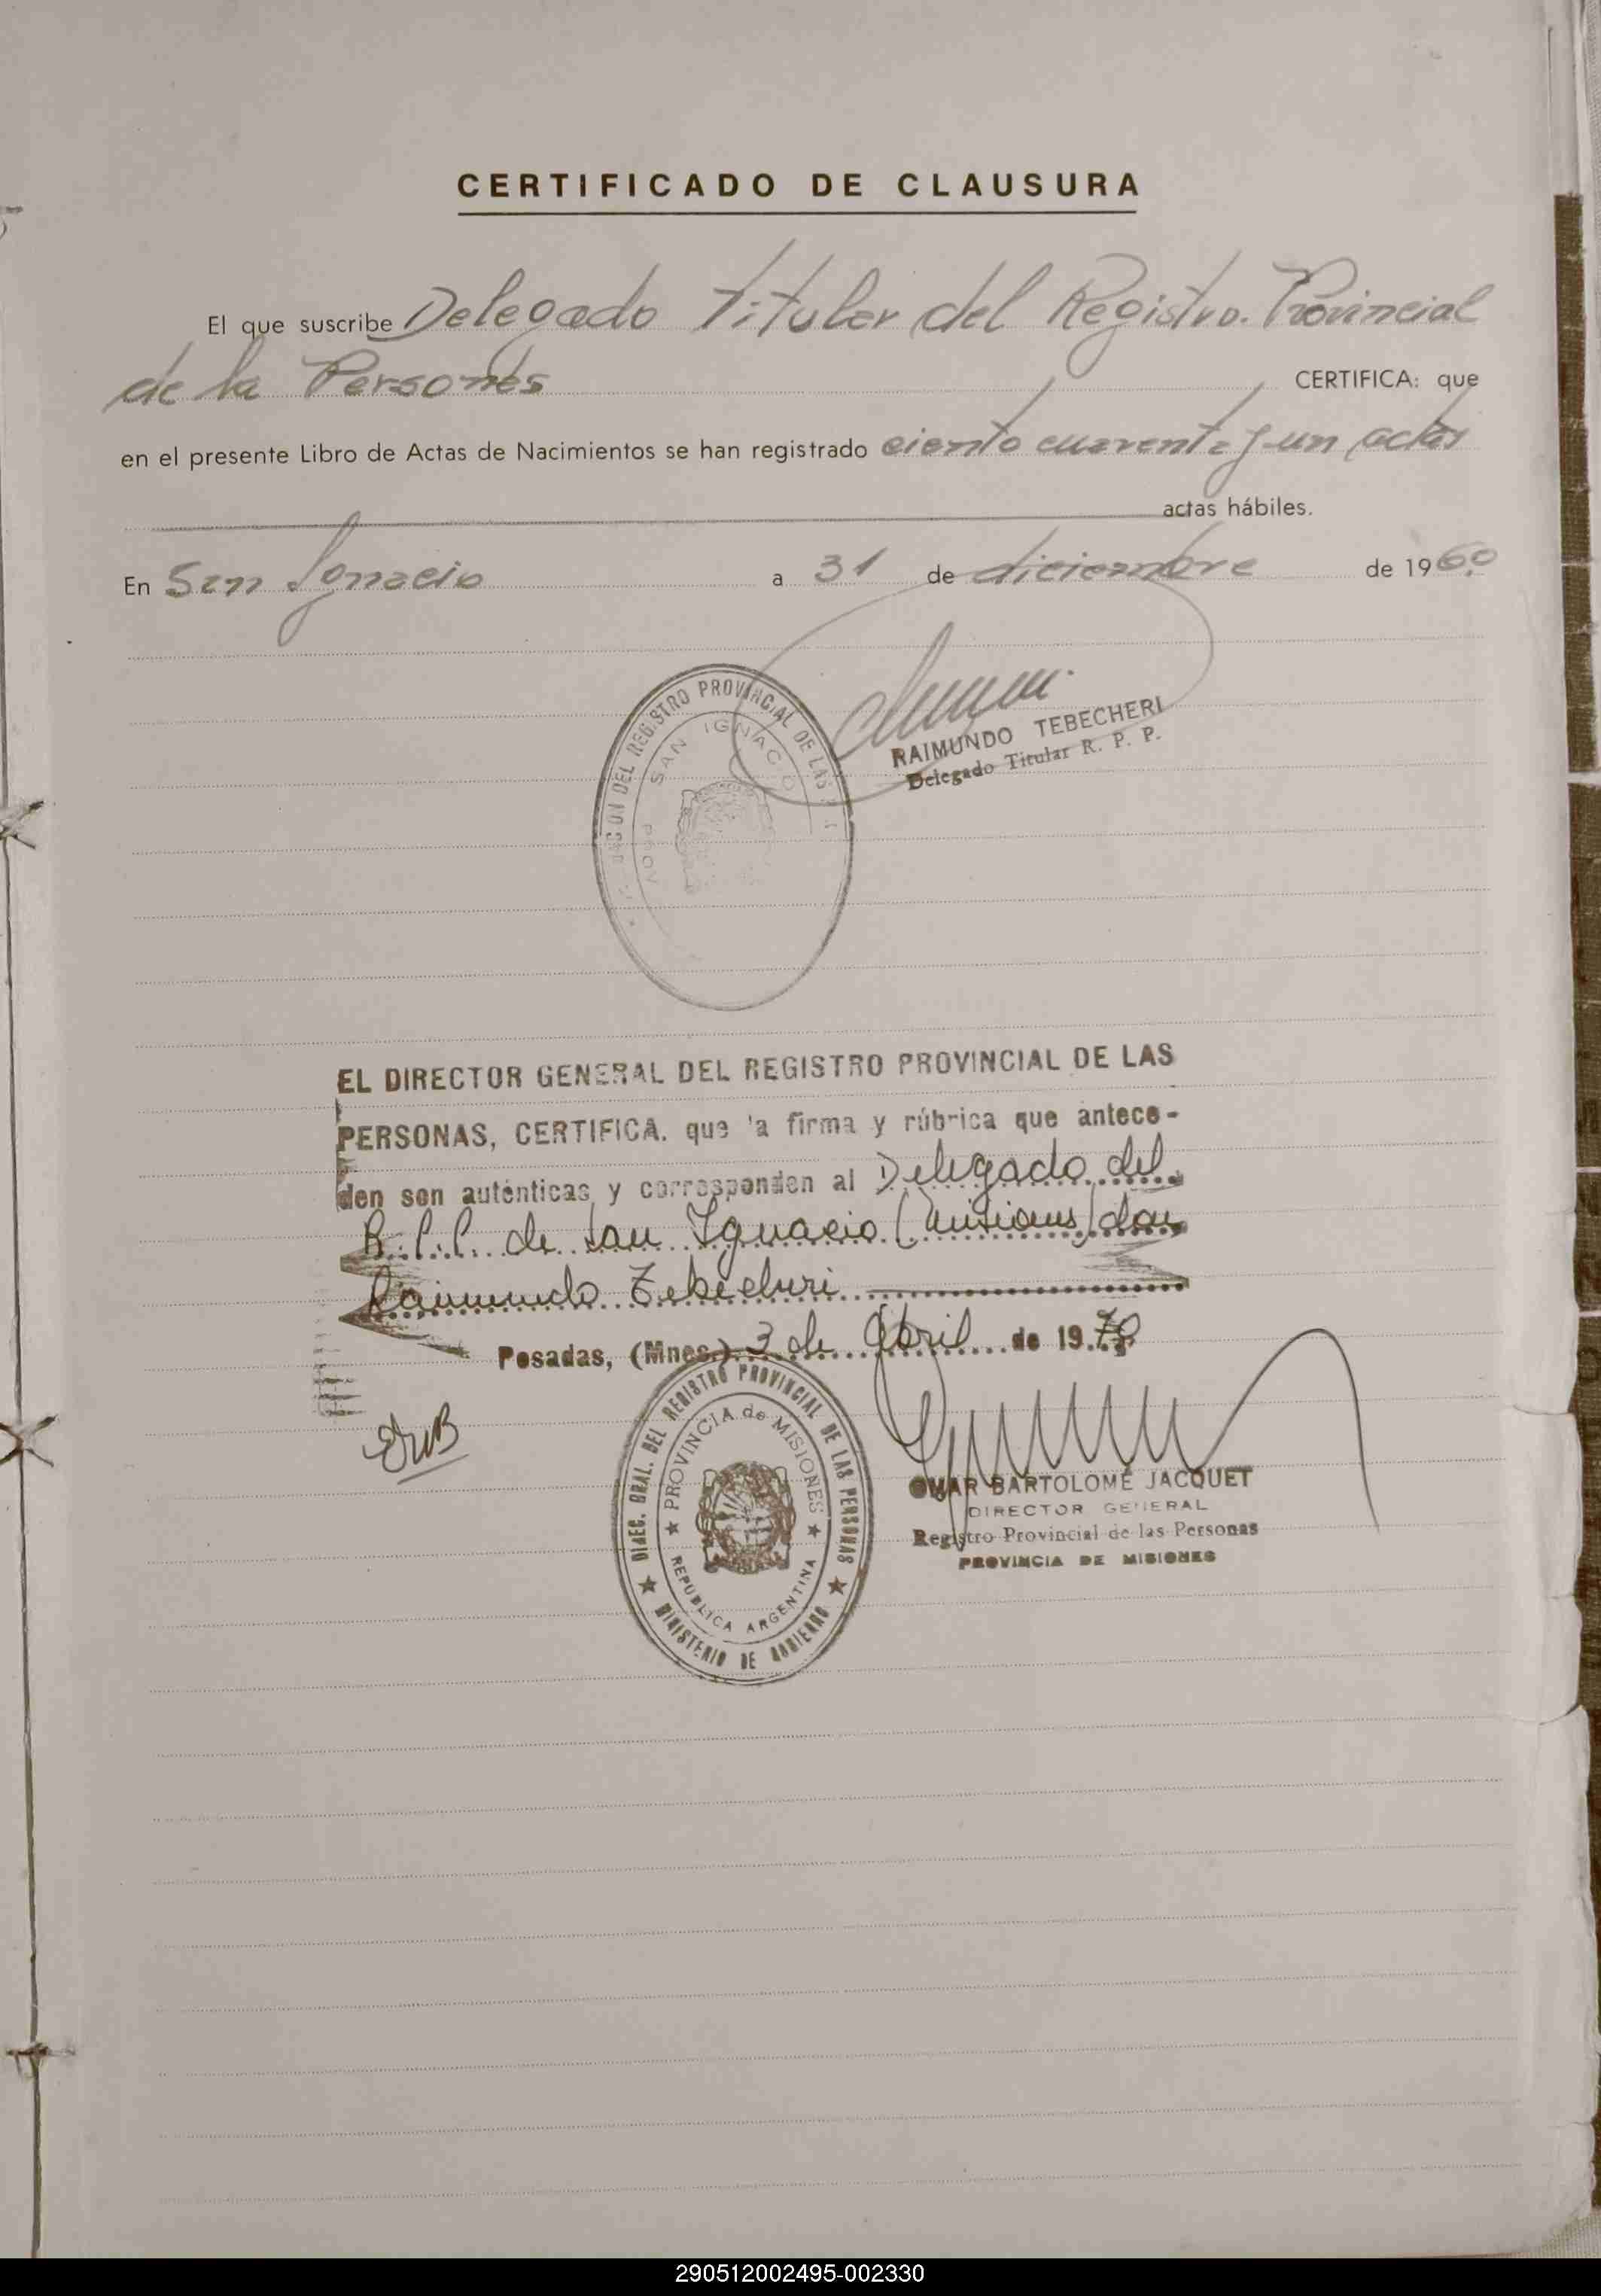 CERTIFICADO DE CLAUSURA
El que suscribe Delegado Titular del Registro. Provincial
de la Persones CERTIFICA: que
en el presente Libro de Actas de Nacimientos se han registrado ciento cuarenta y un actas
actas hábiles.
En San Ignacio a 31 de diciembre de 1960
REGISTRO PROVINCIAL DE LAS
SAN IGNACIO
PROV
RAIMUNDO TEBECHERI
Delegado Titular R. P. P.
EL DIRECTOR GENERAL DEL REGISTRO PROVINCIAL DE LAS
PERSONAS, CERTIFICA. que la firma y rúbrica que antece-
den son auténticas y corresponden al Delegado del
R.P.P. de San Ignacio (Misiones) don
Raimundo Tebecheri
Posadas, (Mnes.) 3 de Abril de 1970
DIREC. GRAL. DEL REGISTRO PROVINCIAL DE LAS PERSONAS
PROVINCIA de MISIONES
REPUBLICA ARGENTINA
MINISTERIO DE GOBIERNO
OMAR BARTOLOMÉ JACQUET
DIRECTOR GENERAL
Registro Provincial de las Personas
PROVINCIA DE MISIONES
290512002495-002330